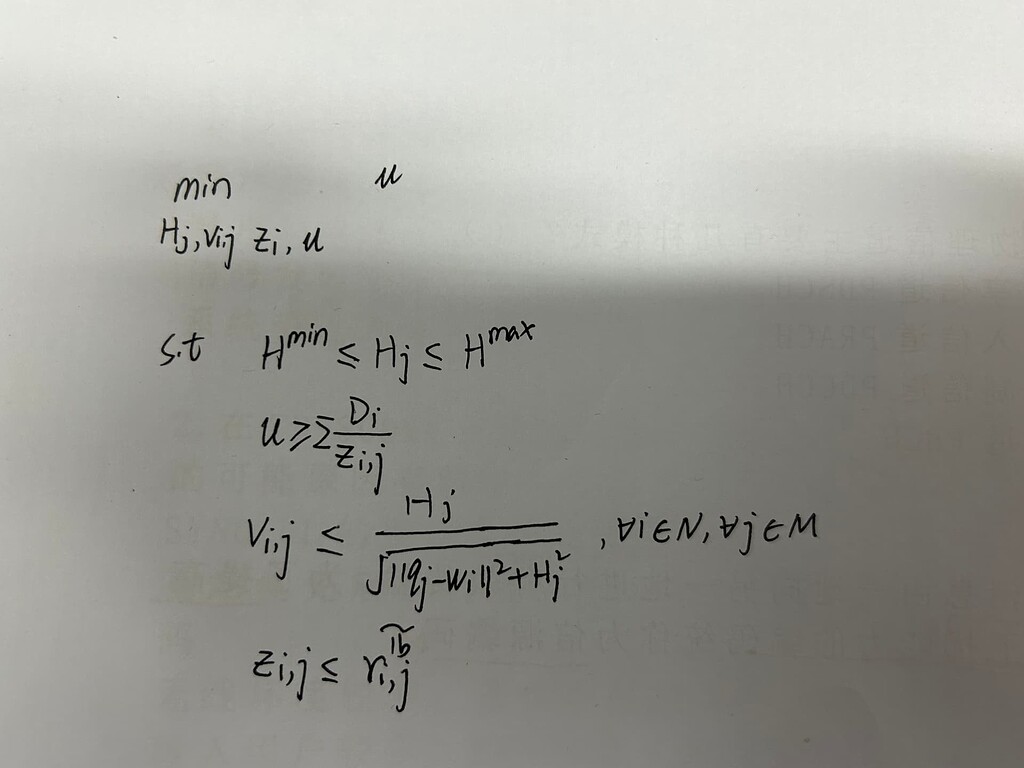 min u
Hj, Vij Zi, u
s.t H^min ≤ Hj ≤ H^max
u ≥ Σ Di / Zi,j
Vi,j ≤ Hj / √(||qj-wi||² + Hj²) , ∀i∈N, ∀j∈M
Zi,j ≤ r̃i,j^lb